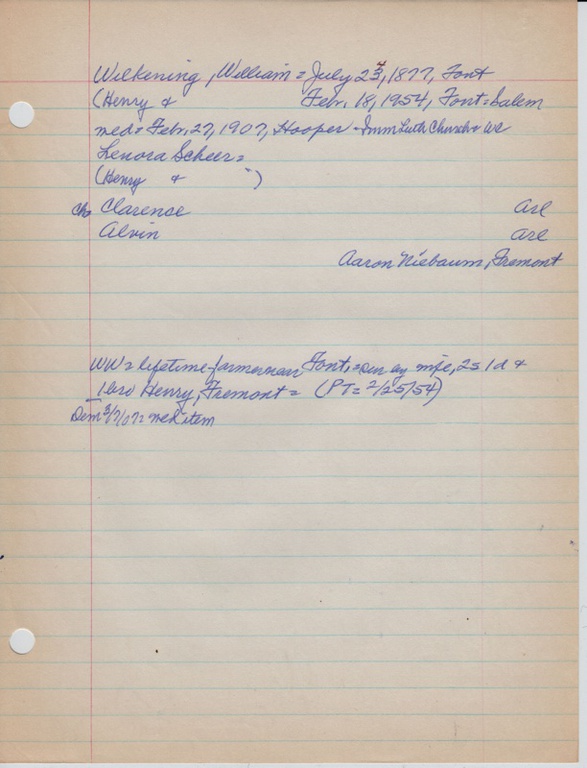 Wilkening, William = July 23, 1877, Font
(Henry & Febr. 18, 1954, Font = Salem
med = Febr. 27, 1907, Hooper - Imm Luth Church & We
Lenora Scheer =
(Henry & " )
Ch Clarence Arl
Alvin Arl
Aaron Niebaum, Fremont
WW = lifetime farmer near Font, = sur by wife, 2s 1d &
1 bro Henry, Fremont = (PT = 2/25/54)
Dem 3/7/07 = med item